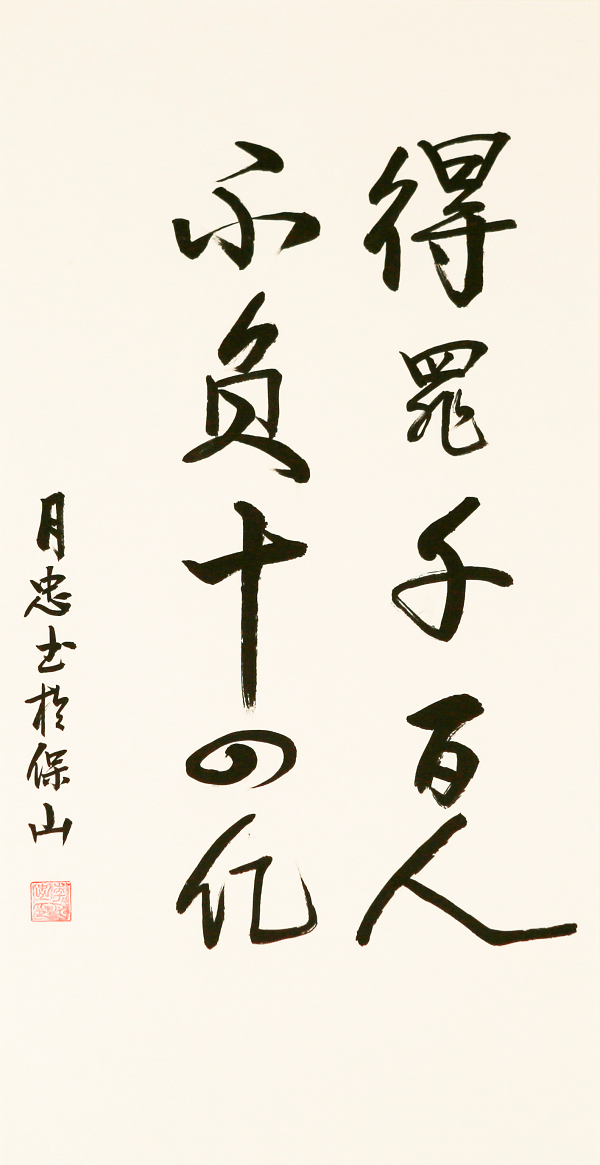 得罪千百人
不负十四亿
月忠书于保山